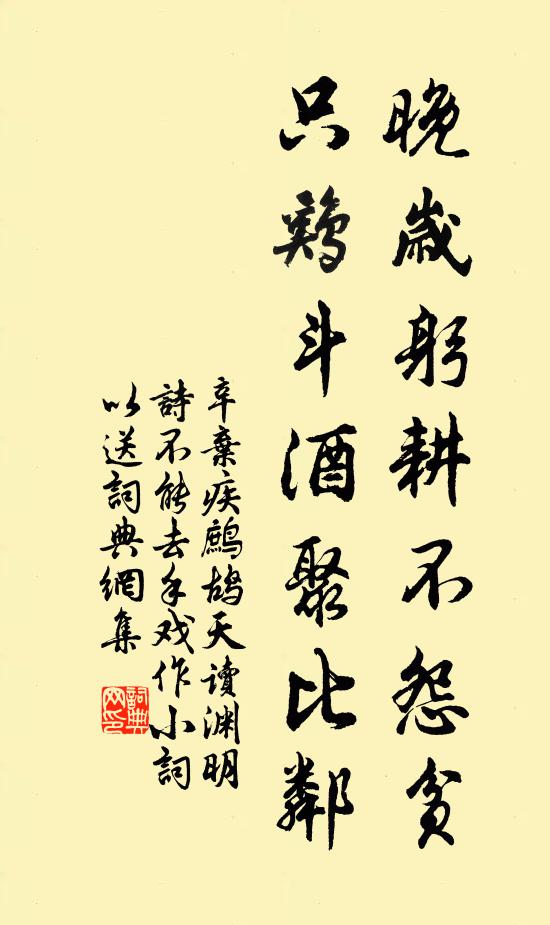 晚歲躬耕不怨貧
只鷄斗酒聚比鄰
辛棄疾鷓鴣天讀渊明
詩不能去手戏作小詞
以送詞典網集
詞典
网印